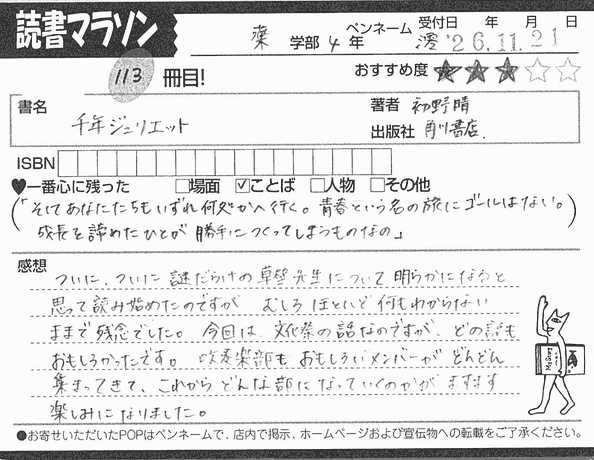 読書マラソン
薬 学部 4 年 ペンネーム 澪 受付日 年 月 日 '26.11.21
113 冊目! おすすめ度 ★★★☆☆
書名 千年ジュリエット
著者 初野晴
出版社 角川書店.
ISBN
♥一番心に残った □場面 ☑ことば □人物 □その他
(「そしてあなたたちもいずれ何処かへ行く。青春という名の旅にゴールはない。
成長を諦めたひとが勝手につくってしまうものなの」)
感想
ついに、ついに謎だらけの草壁先生について明らかになると
思って読み始めたのですが むしろほとんど何もわからない
ままで残念でした。今回は、文化祭の話なのですが、どの話も
おもしろかったです。吹奏楽部もおもしろいメンバーがどんどん
集まってきて、これからどんな部になっていくのかがますます
楽しみになりました。
●お寄せいただいたPOPはペンネームで、店内で掲示、ホームページおよび宣伝物への転載をご了承ください。